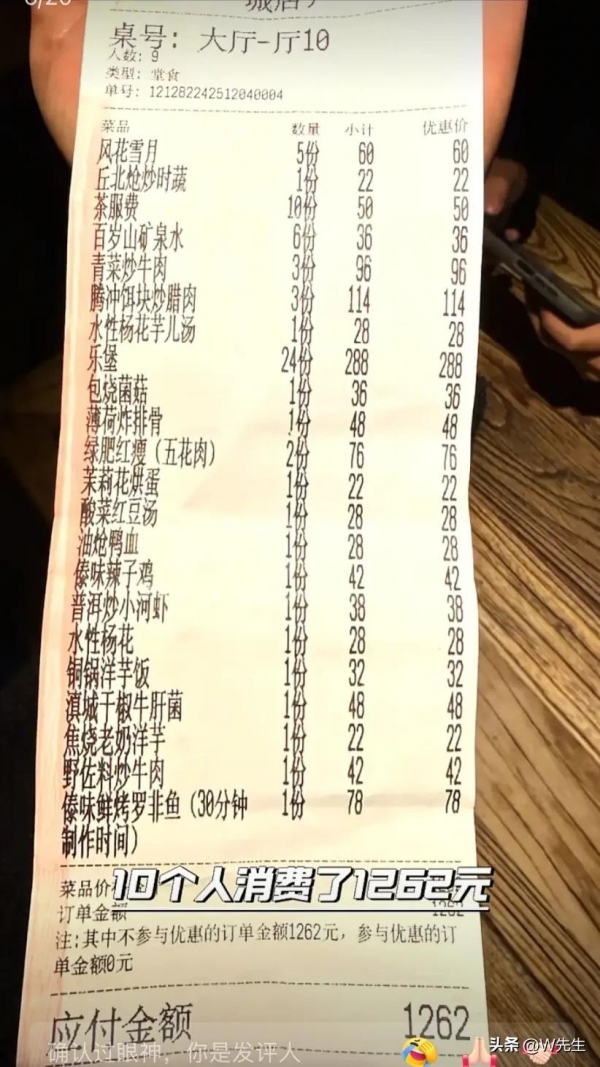 桌号: 大厅-厅10
人数: 9
类型: 堂食
单号: 121282242512040004
菜品 数量 小计 优惠价
风花雪月 5份 60 60
丘北炝炒时蔬 1份 22 22
茶服费 10份 50 50
百岁山矿泉水 6份 36 36
青菜炒牛肉 3份 96 96
腾冲饵块炒腊肉 3份 114 114
水性杨花芋儿汤 1份 28 28
乐堡 24份 288 288
包烧菌菇 1份 36 36
薄荷炸排骨 1份 48 48
绿肥红瘦（五花肉） 2份 76 76
茉莉花烘蛋 1份 22 22
酸菜红豆汤 1份 28 28
油炝鸭血 1份 28 28
傣味辣子鸡 1份 42 42
普洱炒小河虾 1份 38 38
水性杨花 1份 28 28
铜锅洋芋饭 1份 32 32
滇城干椒牛肝菌 1份 48 48
焦烧老奶洋芋 1份 22 22
野佐料炒牛肉 1份 42 42
傣味鲜烤罗非鱼（30分钟 1份 78 78
制作时间）
菜品价
10个人消费了1262元
订单金额 1262
注:其中不参与优惠的订单金额1262元，参与优惠的订
单金额0元
应付金额 1262
确认过眼神，你是发评人
头条 @W先生